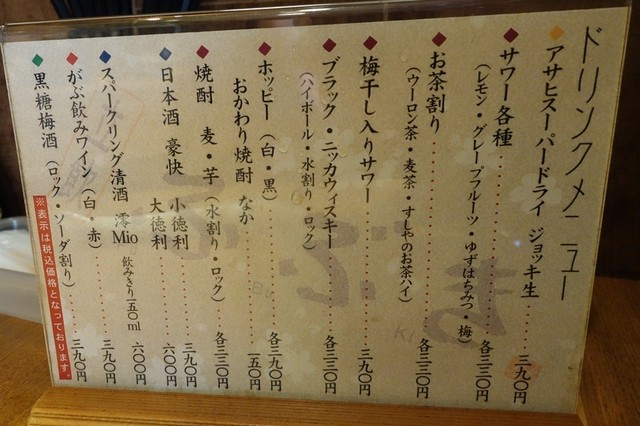 ドリンクメニュー
アサヒスーパードライ ジョッキ生 三九〇円
サワー各種 各三三〇円
(レモン・グレープフルーツ・ゆずはちみつ・梅)
お茶割り 各三三〇円
(ウーロン茶・麦茶・すしやのお茶ハイ)
梅干し入りサワー 三九〇円
ブラック・ニッカウィスキー 各三三〇円
(ハイボール・水割り・ロック)
ホッピー(白・黒) 各三九〇円
おかわり焼酎 なか 一五〇円
焼酎 麦・芋(水割り・ロック) 各三三〇円
日本酒 豪快 小徳利 三九〇円
大徳利 六〇〇円
スパークリング清酒 澪Mio 飲みきり一五〇ml 六〇〇円
がぶ飲みワイン(白・赤) 三九〇円
黒糖梅酒(ロック・ソーダ割り) 三九〇円
※表示は税込価格となっております。